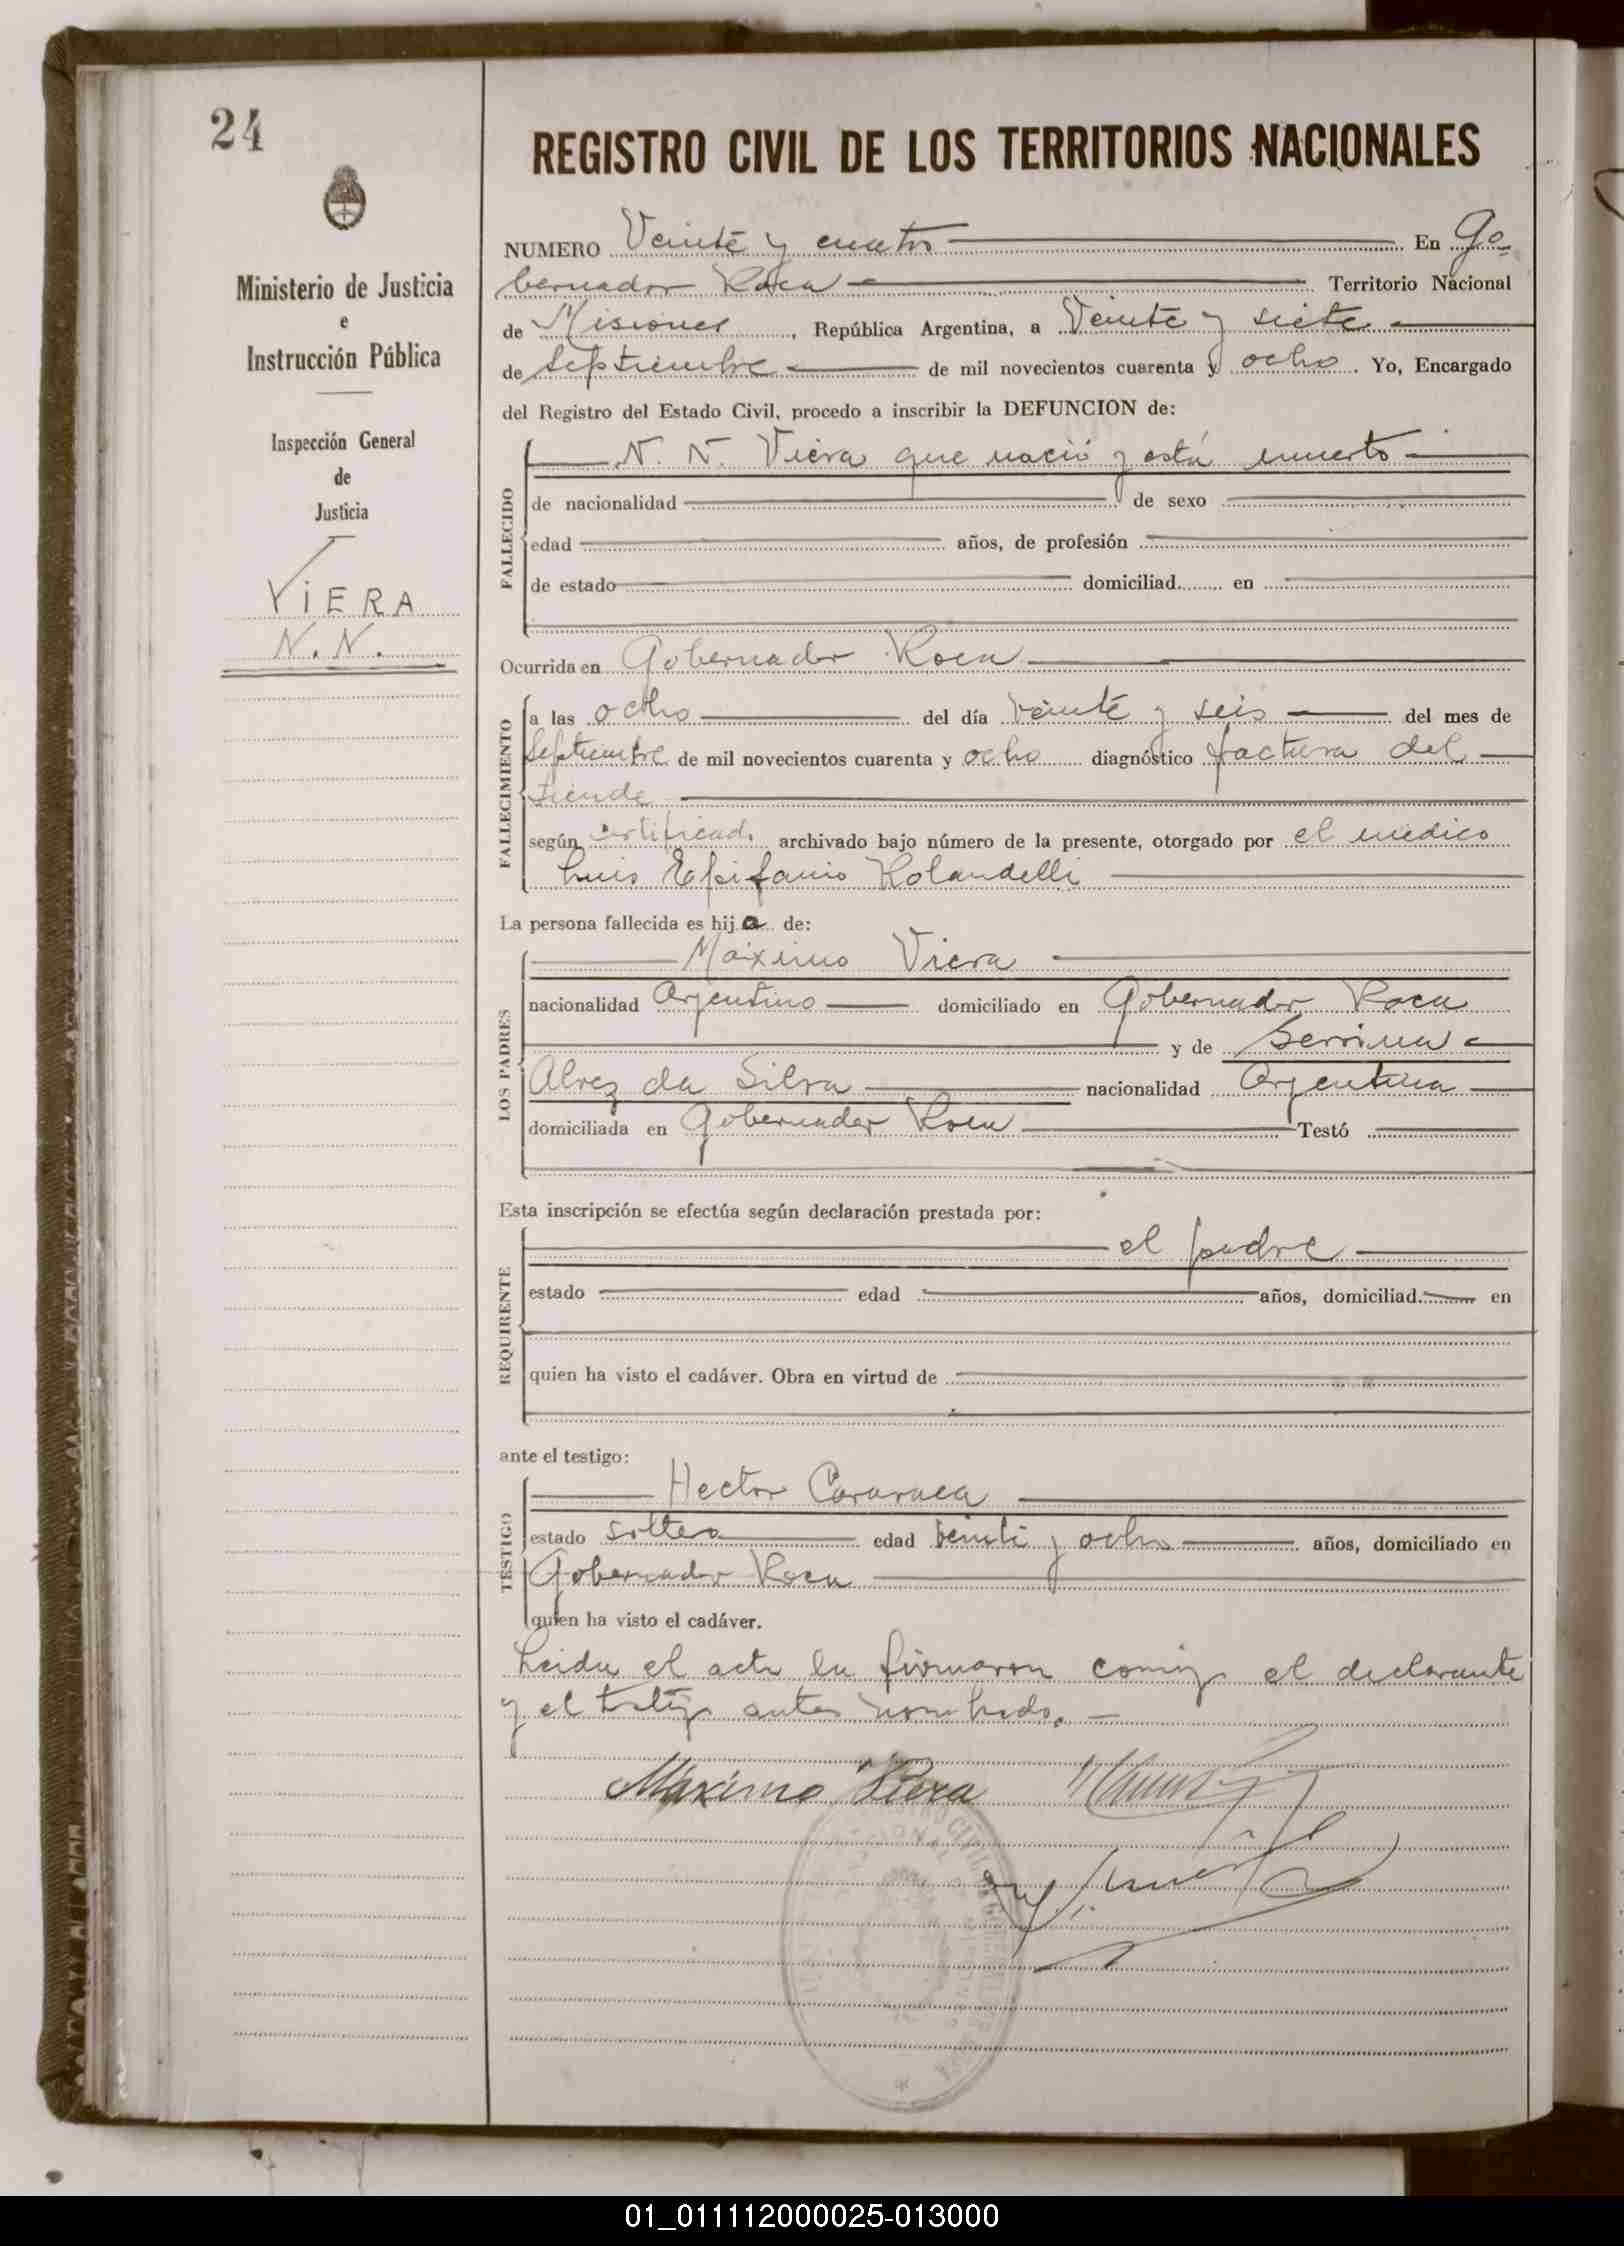 24
REGISTRO CIVIL DE LOS TERRITORIOS NACIONALES
Ministerio de Justicia
e
Instrucción Pública
Inspección General
de
Justicia
VIERA
N. N.
NUMERO Veinte y cuatro En Go-
bernador Roca Territorio Nacional
de Misiones, República Argentina, a Veinte y siete
de Septiembre de mil novecientos cuarenta y ocho. Yo, Encargado
del Registro del Estado Civil, procedo a inscribir la DEFUNCION de:
FALLECIDO
N. N. Viera que nació y está muerto
de nacionalidad de sexo
edad años, de profesión
de estado domiciliad en
Ocurrida en Gobernador Roca
FALLECIMIENTO
a las ocho del día veinte y seis del mes de
Septiembre de mil novecientos cuarenta y ocho diagnóstico factura del
según certificado archivado bajo número de la presente, otorgado por el médico
Luis Epifanio Rolandelli
La persona fallecida es hija de:
LOS PADRES
Máximo Viera
nacionalidad Argentino domiciliado en Gobernador Roca
y de
Alvez da Silva nacionalidad Argentina
domiciliada en Gobernador Roca Testó
Esta inscripción se efectúa según declaración prestada por:
REQUIRENTE
el padre
estado edad años, domiciliad en
quien ha visto el cadáver. Obra en virtud de
ante el testigo:
TESTIGO
Hector Caravaca
estado soltero edad veinte y ocho años, domiciliado en
Gobernador Roca
quien ha visto el cadáver.
Leida el acta la firmaron conmigo el declarante
y el testigo antes nombrado.
Máximo Viera
01_011112000025-013000